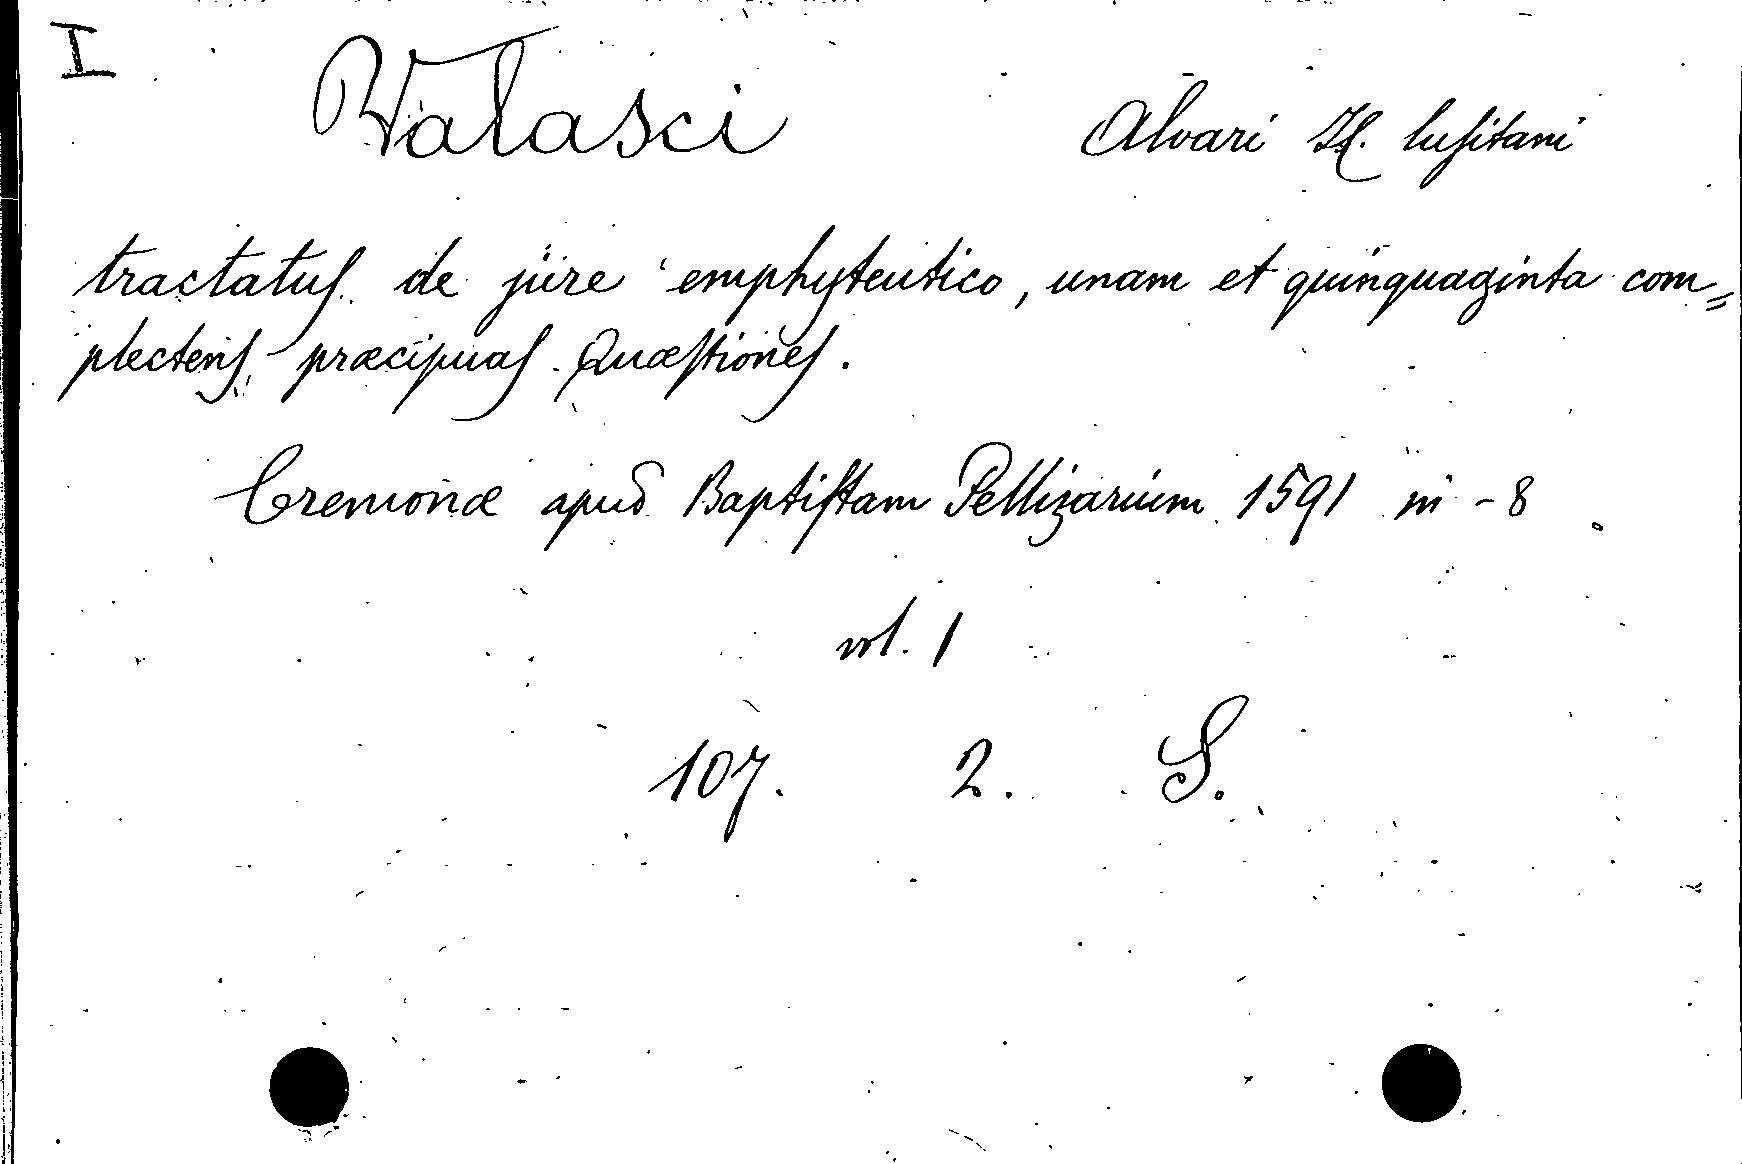 I
Valasci Alvari JC. lusitani
tractatus de jure emphyteutico, unam et quinquaginta com=
plectens præcipuas Quæstiones.
Cremonæ apud Baptistam Pellizarium 1591 in-8
vol. 1
107. 2. S.